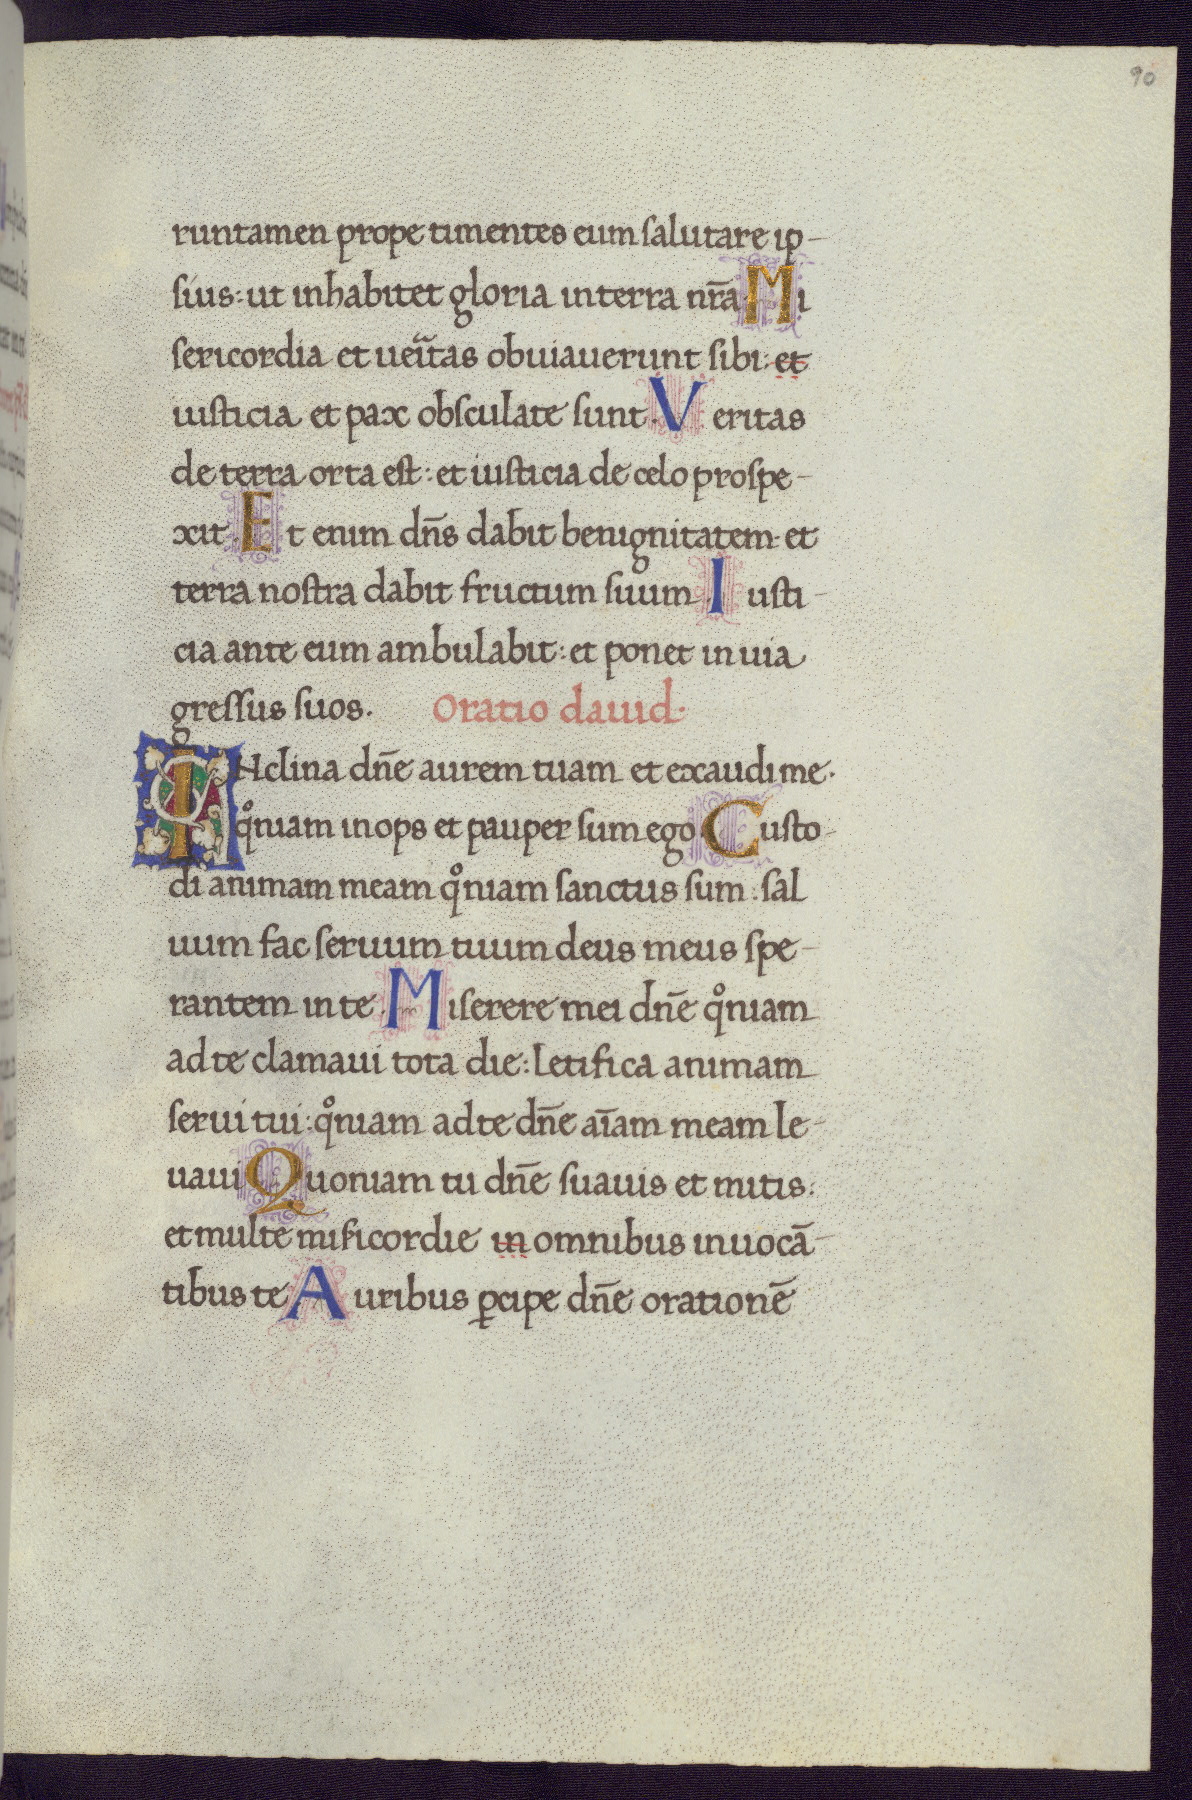 90
runtamen prope timentes eum salutare ip-
sius: ut inhabitet gloria in terra nr̄a. Mi
sericordia et ueīt̄as obuiauerunt sibi: et
iusticia et pax obsculate sunt. Veritas
de terra orta est: et iusticia de celo prospe-
xit. Et enim dn̄s dabit benignitatem et
terra nostra dabit fructum suum. Iusti-
cia ante eum ambulabit: et ponet in uia
gressus suos. Oratio dauid.
INclina dn̄e aurem tuam et exaudi me.
qͦniam inops et pauper sum ego. Custo-
di animam meam qͦniam sanctus sum: sal
uum fac seruum tuum deus meus spe-
rantem in te. Miserere mei dn̄e qͦniam
ad te clamaui tota die: letifica animam
serui tui: qͦniam ad te dn̄e aīam meam le-
uaui Quoniam tu dn̄e suauis et mitis:
et multe misicordie in omnibus inuocā-
tibus te Auribus ꝑcipe dn̄e orationē